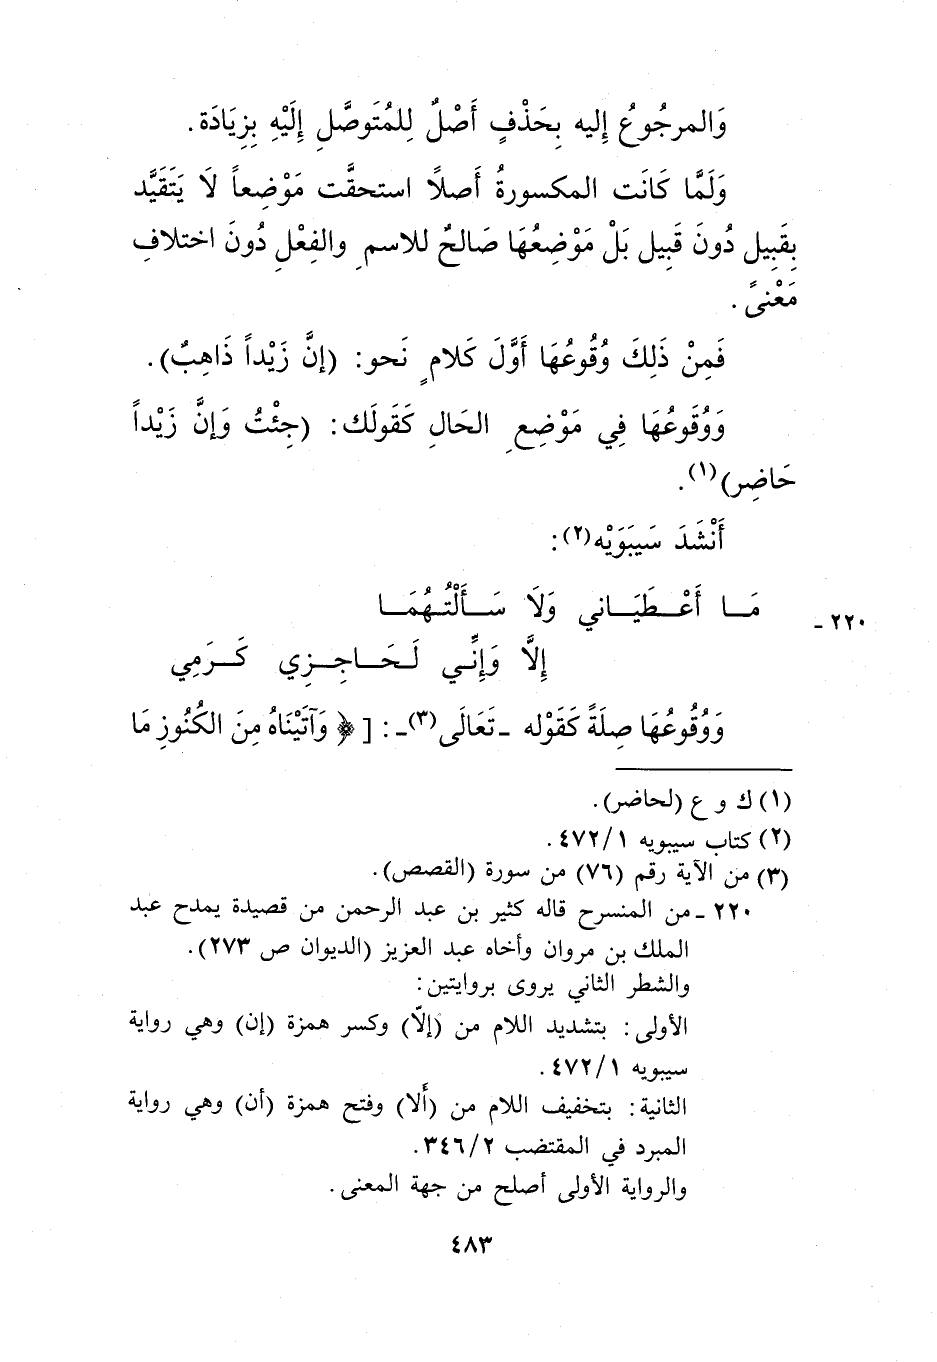 وَالمرجُوعُ إليه بِحَذْفٍ أَصْلٌ لِلمُتَوصَّلِ إِلَيْهِ بِزِيَادَة.
وَلَمَّا كَانَت المكسورةُ أَصلًا استحقَّت مَوْضِعاً لَا يَتَقَيَّد
بِقَبِيل دُونَ قَبِيل بَلْ مَوْضِعُهَا صَالحٌ للاسمِ والفِعْلِ دُونَ اختلافِ
مَعْنىً.
فَمِنْ ذَلِكَ وُقُوعُهَا أَوَّلَ كَلامٍ نَحو: (إنَّ زَيْداً ذَاهِبٌ).
وَوُقُوعُهَا فِي مَوْضِعِ الحَالِ كَقَولَك: (جِئْتُ وَإنَّ زَيْداً
حَاضِر)(١).
أَنْشَدَ سَيبَوَيْه(٢):
٢٢٠- مَـا أَعْـطَيَـاني وَلَا سَـأَلْتُـهُمَـا
إِلاَّ وَإِنِّـي لَـحَـاجِـزِي كَـرَمِي
وَوُقُوعُهَا صِلَةً كَقَوْله -تَعَالَى(٣)-: [﴿وَآتَيْنَاهُ مِنَ الكُنُوزِ مَا
(١) ك و ع (لحاضر).
(٢) كتاب سيبويه ٤٧٢/١.
(٣) من الآية رقم (٧٦) من سورة (القصص).
٢٢٠-من المنسرح قاله كثير بن عبد الرحمن من قصيدة يمدح عبد
الملك بن مروان وأخاه عبد العزيز (الديوان ص ٢٧٣).
والشطر الثاني يروى بروايتين:
الأولى: بتشديد اللام من (إلاّ) وكسر همزة (إن) وهي رواية
سيبويه ٤٧٢/١.
الثانية: بتخفيف اللام من (أَلا) وفتح همزة (أن) وهي رواية
المبرد في المقتضب ٣٤٦/٢.
والرواية الأولى أصلح من جهة المعنى.
٤٨٣